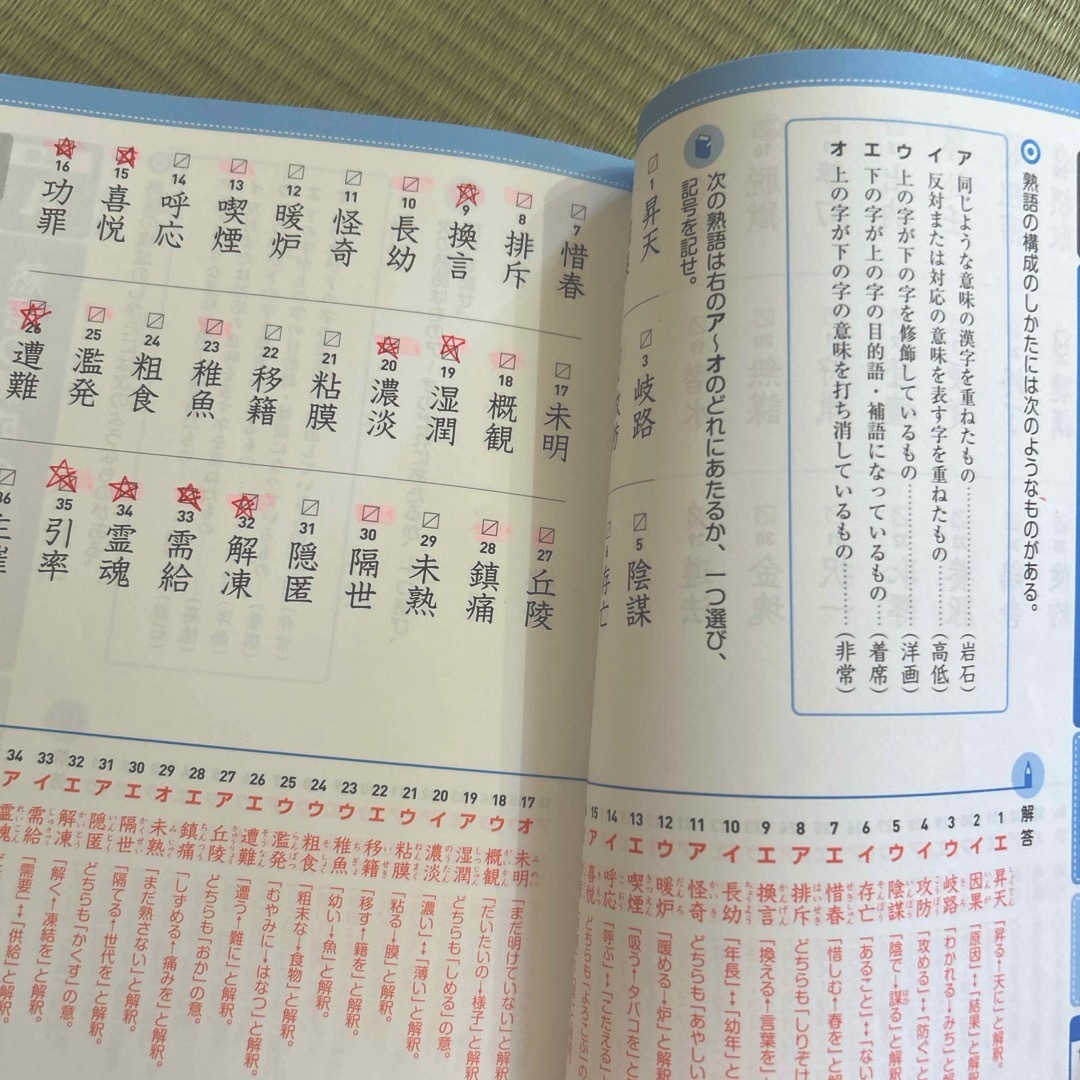 熟語の構成のしかたには次のようなものがある。
ア 同じような意味の漢字を重ねたもの……………（岩石）
イ 反対または対応の意味を表す字を重ねたもの……（高低）
ウ 上の字が下の字を修飾しているもの……………（洋画）
エ 下の字が上の字の目的語・補語になっているもの…（着席）
オ 上の字が下の字の意味を打ち消しているもの……（非常）
次の熟語は右のア〜オのどれにあたるか、一つ選び、
記号を記せ。
1 昇天
3 岐路
5 陰謀
7 惜春
8 排斥
9 換言
10 長幼
11 怪奇
12 暖炉
13 喫煙
14 呼応
15 喜悦
16 功罪
17 未明
18 概観
19 湿潤
20 濃淡
21 粘膜
22 移籍
23 稚魚
24 粗食
25 濫発
26 遭難
27 丘陵
28 鎮痛
29 未熟
30 隔世
31 隠匿
32 解凍
33 需給
34 霊魂
35 引率
36
解答
1 エ 昇天 「昇る→天に」と解釈。
2 イ 因果 「原因」↔「結果」と解釈
3 ウ 岐路 「わかれる→みち」と解
4 イ 攻防 「攻める」↔「防ぐ」と
5 ウ 陰謀 「陰で→謀る」と解釈
6 イ 存亡 「あること」↔「ない
7 エ 惜春 「惜しむ→春を」と解
8 ア 排斥 どちらも「しりぞけ
9 エ 換言 「換える→言葉を」
10 イ 長幼 「年長」↔「幼年」と
11 ア 怪奇 どちらも「あやしい
12 ウ 暖炉 「暖める→炉」と解
13 エ 喫煙 「吸う→タバコを」と
14 イ 呼応 「呼ぶ」↔「こたえる」と
15 ア 喜悦 どちらも「よろこぶ」の
17 オ 未明 「まだ明けていない」と解釈。
18 ウ 概観 「だいたいの→様子」と解釈
19 ア 湿潤 どちらも「しめる」の意。
20 イ 濃淡 「濃い」↔「薄い」と解釈。
21 ウ 粘膜 「粘る→膜」と解釈。
22 エ 移籍 「移す→籍を」と解釈。
23 ウ 稚魚 「幼い→魚」と解釈。
24 ウ 粗食 「粗末な→食物」と解釈。
25 ウ 濫発 「むやみに→はなつ」と解釈。
26 エ 遭難 「遭う→難に」と解釈。
27 ア 丘陵 どちらも「おか」の意。
28 エ 鎮痛 「しずめる→痛みを」と解釈。
29 オ 未熟 「まだ熟さない」と解釈。
30 エ 隔世 「隔てる→世代を」と解釈。
31 ア 隠匿 どちらも「かくす」の意。
32 エ 解凍 「解く→凍結を」と解釈。
33 イ 需給 「需要」↔「供給」と解釈。
34 ア 霊魂